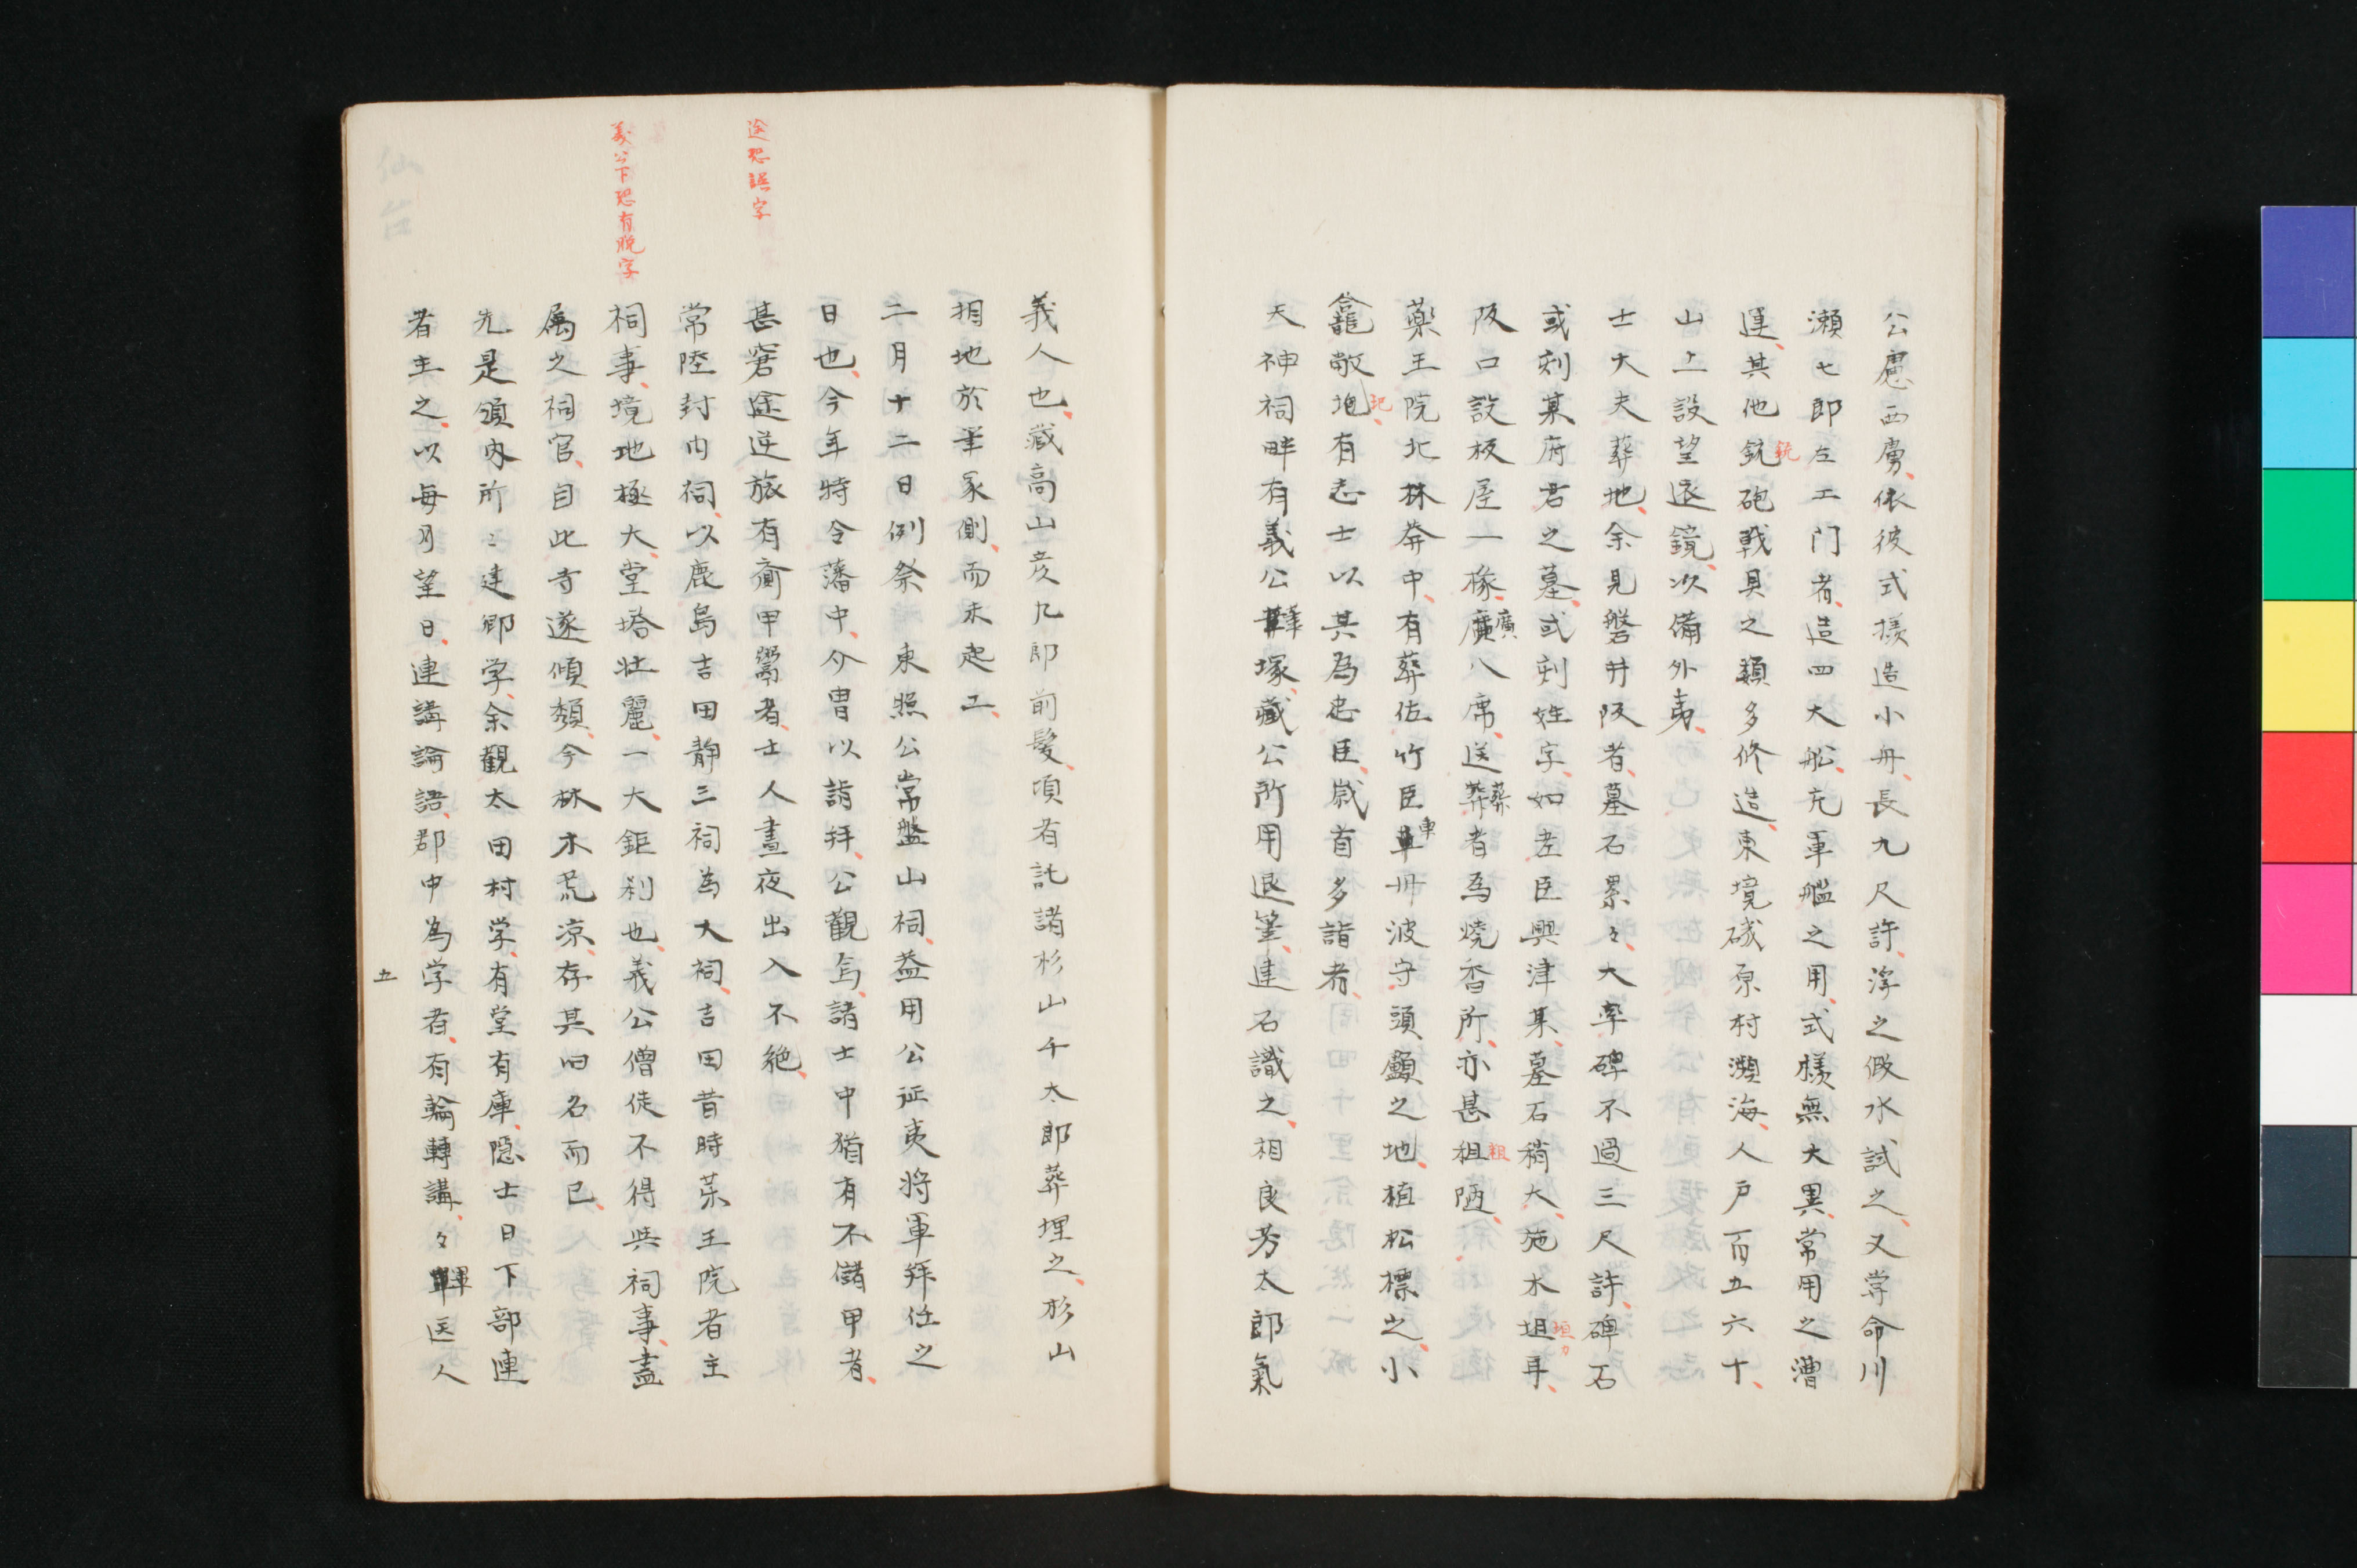 公慮西虜、依彼式様造小舟、長九尺許、浮之仮水試之、又嘗命川
瀬七郎左エ门者、造四大船、充軍艦之用、式様無大異常用之漕
運、其他銃砲戦具之類多修造、東境磯原村瀕海、人戸百五六十、
銃
山上設望遠鏡、以備外夷、
士大夫葬地、余見磐井阪者、墓石累々、大率碑不過三尺許、碑石
或刻某府君之墓、或刻姓字、如老臣興津某、墓石稍大、施木坦耳、
垣カ
阪口設板屋一椽、廣八席、送葬者為焼香所、亦甚粗陋、
廣
葬
粗
薬王院北林莽中、有葬佐竹臣車丹波守頭顱之地、植松標之、小
車
龕敞地、有志士以其為忠臣、歳首多詣者、
圮
天神祠畔有義公筆塚、藏公所用退筆、建石識之、相良芳太郎氣
筆
義人也、藏高山彦九郎前髪、項者託諸杉山千太郎葬埋之、杉山
相地於筆冢側、而未起工、
二月十二日例祭 東照公常盤山祠、益用公征夷将軍拜任之
日也、今年特令藩中、介冑以詣拜、公觀焉、諸士中猶有不儲甲者、
甚窘途逆旅有齎甲鬻者、士人晝夜出入不絶、
途恐誤字
常陸封内祠、以鹿島吉田静三祠為大祠、吉田昔時薬王院者主
祠事、境地極大、堂塔壮麗、一大鉅刹也、義公僧徒不得与祠事、盡
義公下恐有脱字
属之祠官、自此寺遂傾頽、今林木荒凉、存其旧名而已、
先是領内所々建郷学、余觀太田村学、有堂有庫、隠士日下部連
者主之、以毎月望日、連講論語、郡中為学者、有輪轉講、々畢医人
畢
五
仙台